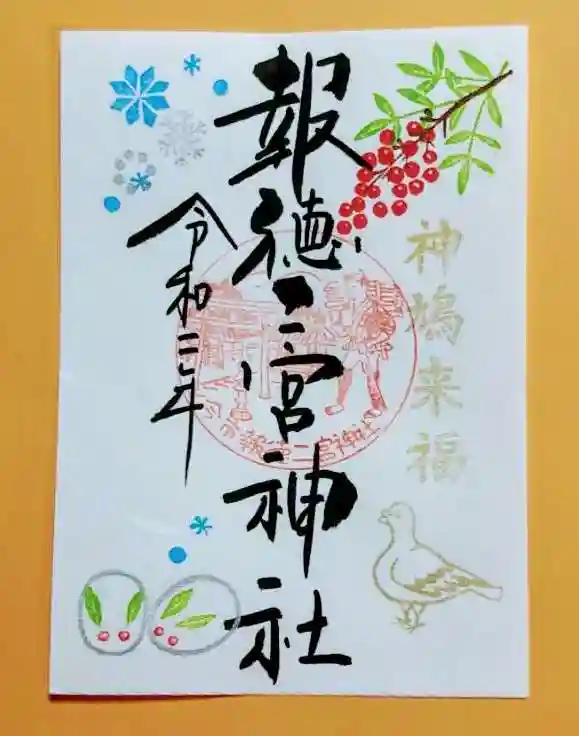 神鳩来福
報徳二宮神社
令和二年
報徳二宮神社